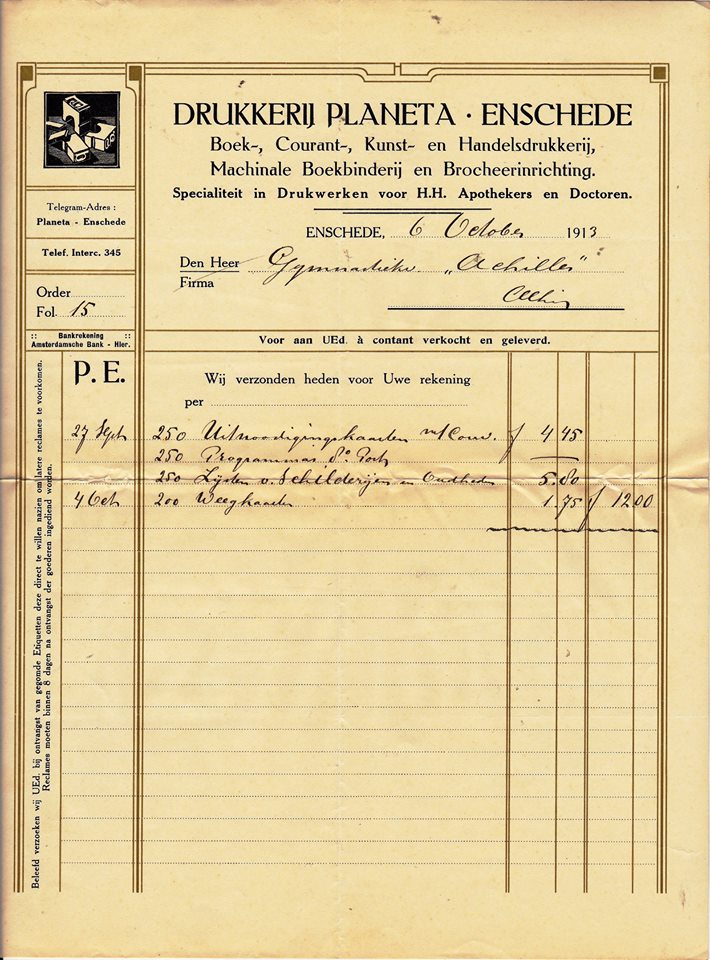 DRUKKERIJ PLANETA · ENSCHEDE
Boek-, Courant-, Kunst- en Handelsdrukkerij,
Machinale Boekbinderij en Brocheerinrichting.
Specialiteit in Drukwerken voor H.H. Apothekers en Doctoren.
Telegram-Adres :
Planeta - Enschede
Telef. Interc. 345
Order
Fol. 15
:: Bankrekening ::
Amsterdamsche Bank - Hier.
ENSCHEDE, 6 October 1913
Den Heer Gymnastiekv. „Achilles"
Firma
Alhier
Voor aan UEd. à contant verkocht en geleverd.
P. E.
Wij verzonden heden voor Uwe rekening
per
27 Sept 250 Uitnoodigingskaarten m/Couv. f 4 45
250 Programmas do
250 Lijsten v. Schilderijen en Oudheden 5.80
4 Oct 200 Weegkaarten 1.75 f 12.00
Beleefd verzoeken wij UEd. bij ontvangst van gegomde Etiquetten deze direct te willen nazien om latere reclames te voorkomen.
Reclames moeten binnen 8 dagen na ontvangst der goederen ingediend worden.